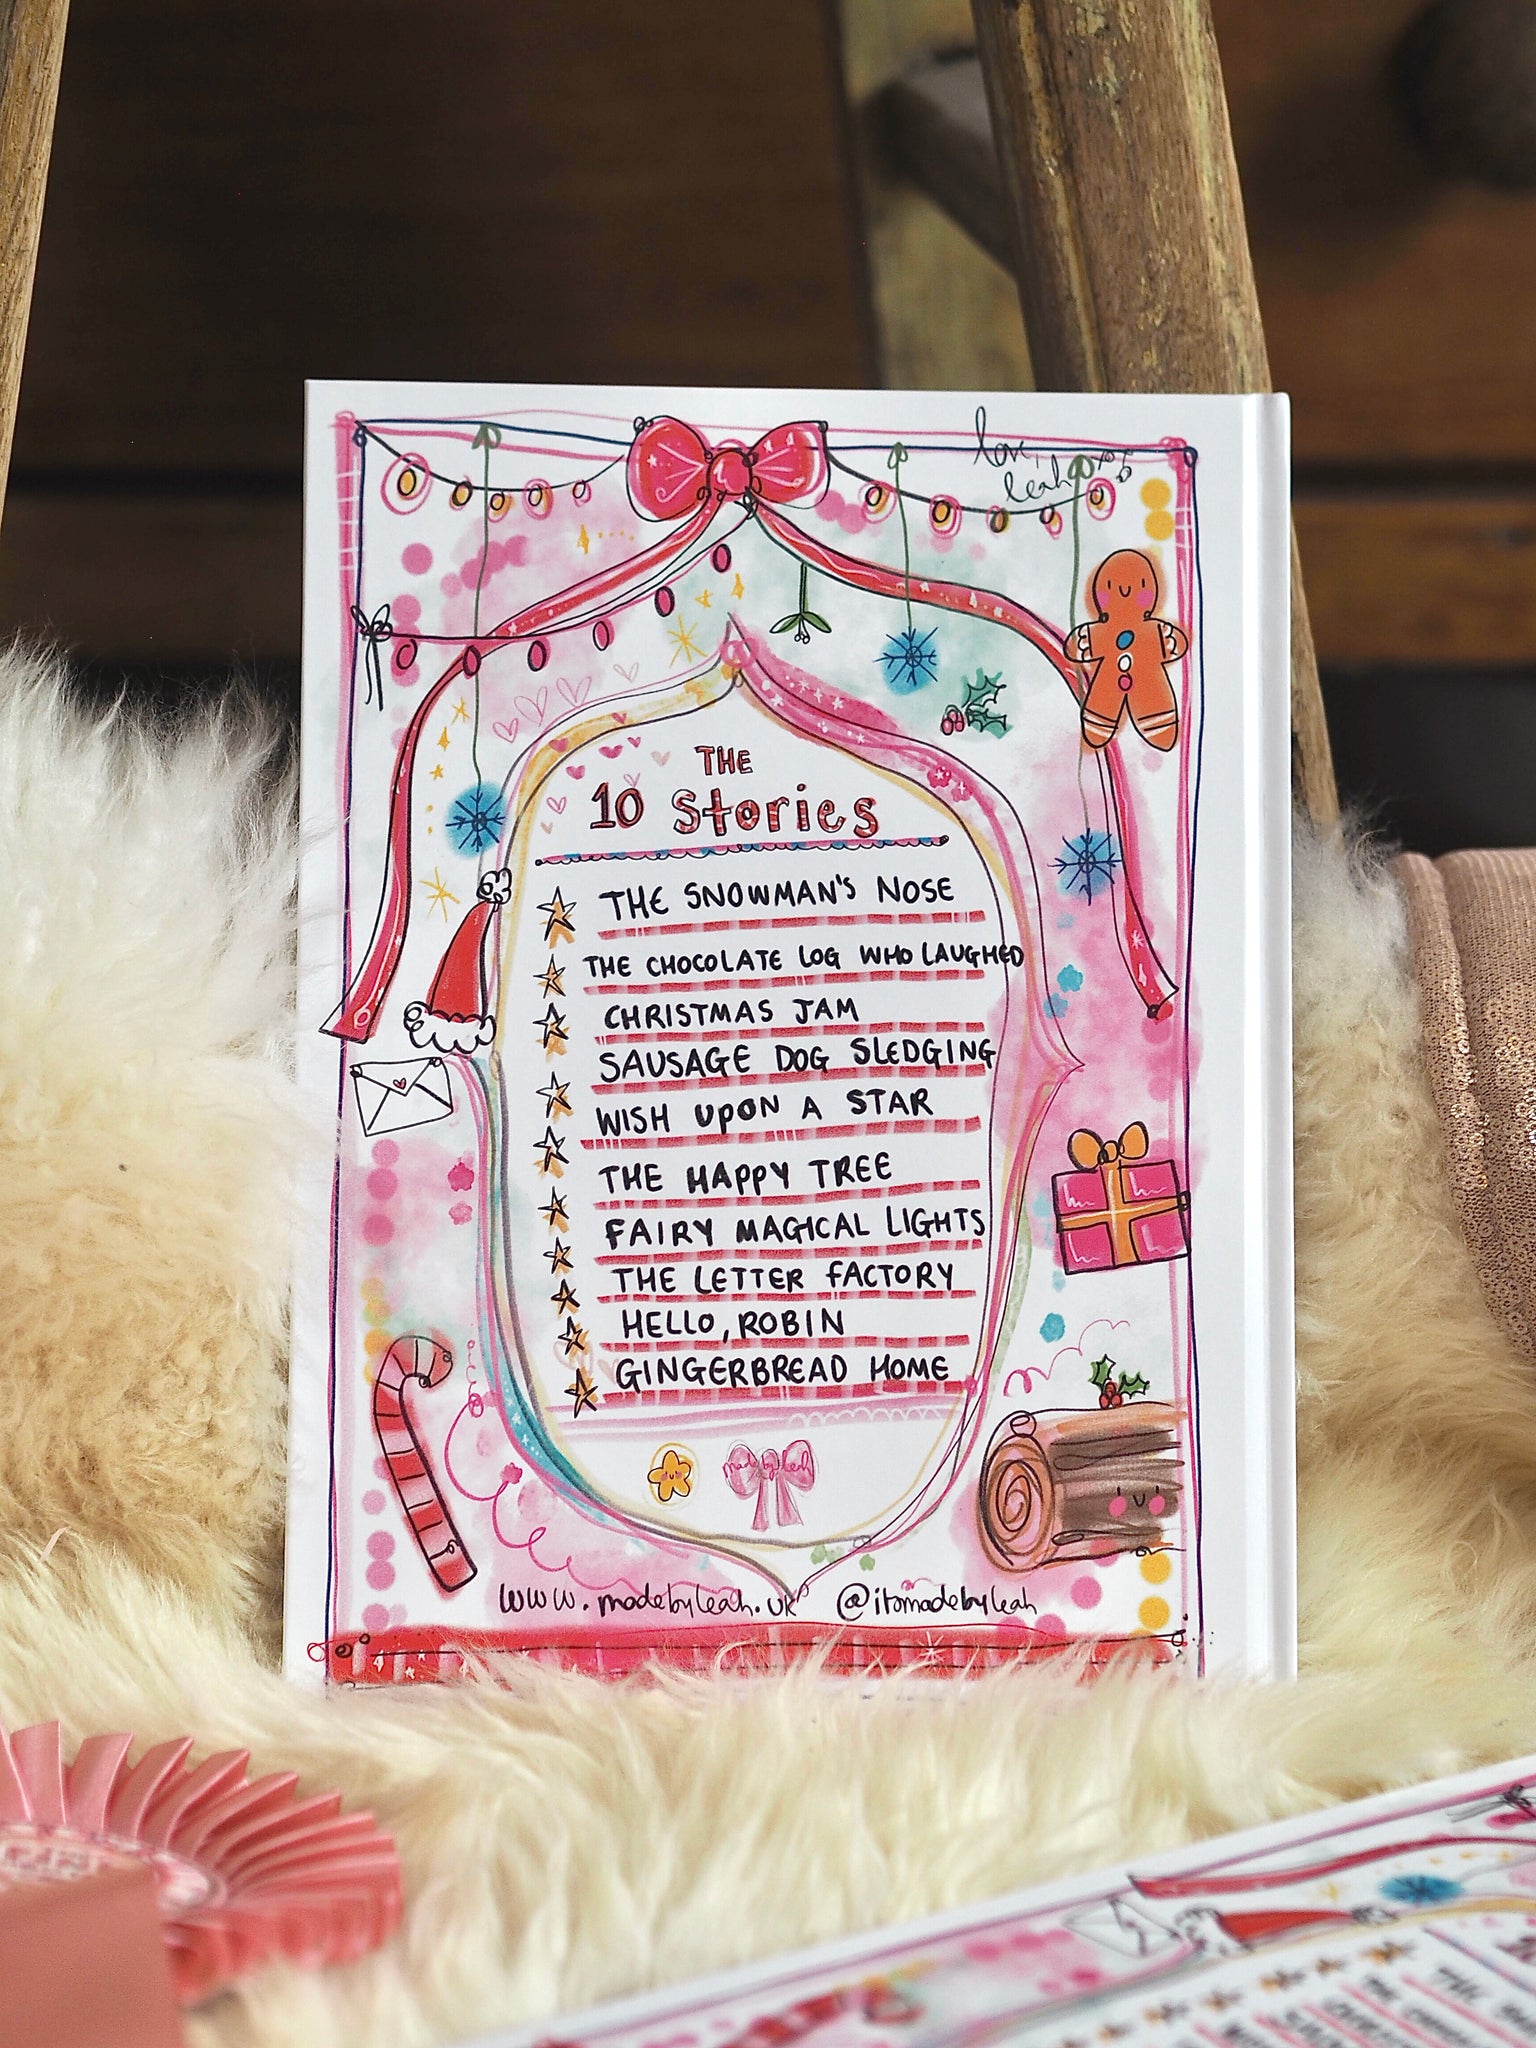 love,
leah
THE
10 Stories
THE SNOWMAN'S NOSE
THE CHOCOLATE LOG WHO LAUGHED
CHRISTMAS JAM
SAUSAGE DOG SLEDGING
WISH UPON A STAR
THE HAPPY TREE
FAIRY MAGICAL LIGHTS
THE LETTER FACTORY
HELLO, ROBIN
GINGERBREAD HOME
made by leah
www.madebyleah.uk @itsmadebyleah